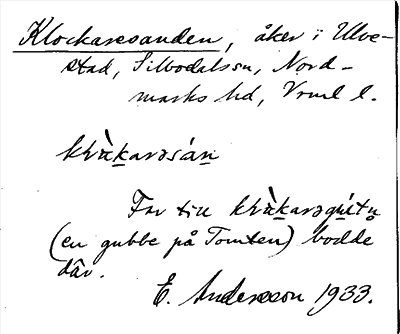 Klockaresanden, åker i Ulve-
stad, Silbodalssn, Nord-
marks hd, Vrml l.
klὰkarəsán
Far till klὰkarəgútn
(en gubbe på Tomten) bodde
där.
E. Andersson 1933.